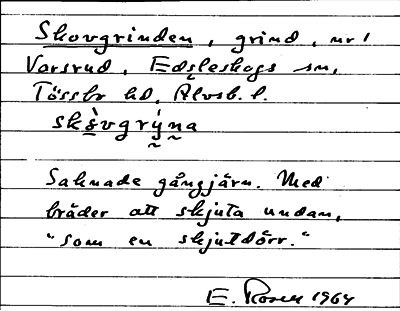 Skovgrinden, grind, nr 1
Vorsrud, Edsleskogs sn,
Tössbo hd, Älvsb. l.
skò̤vgrý̰n̰a
Saknade gångjärn. Med
bräder att skjuta undan,
"som en skjutdörr."
E. Rosen 1964